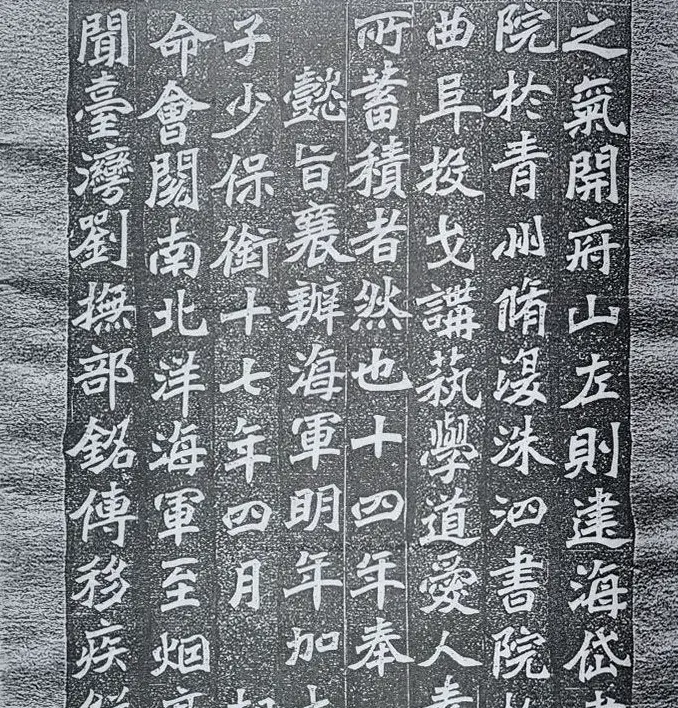 之氣開府山左則建海岱
院於青州脩復洙泗書院
曲阜投戈講蓺學道愛人
所蓄積者然也十四年奉
懿旨襄辦海軍明年加
子少保銜十七年四月
命會閱南北洋海軍至烟
聞臺灣劉撫部銘傳移疾